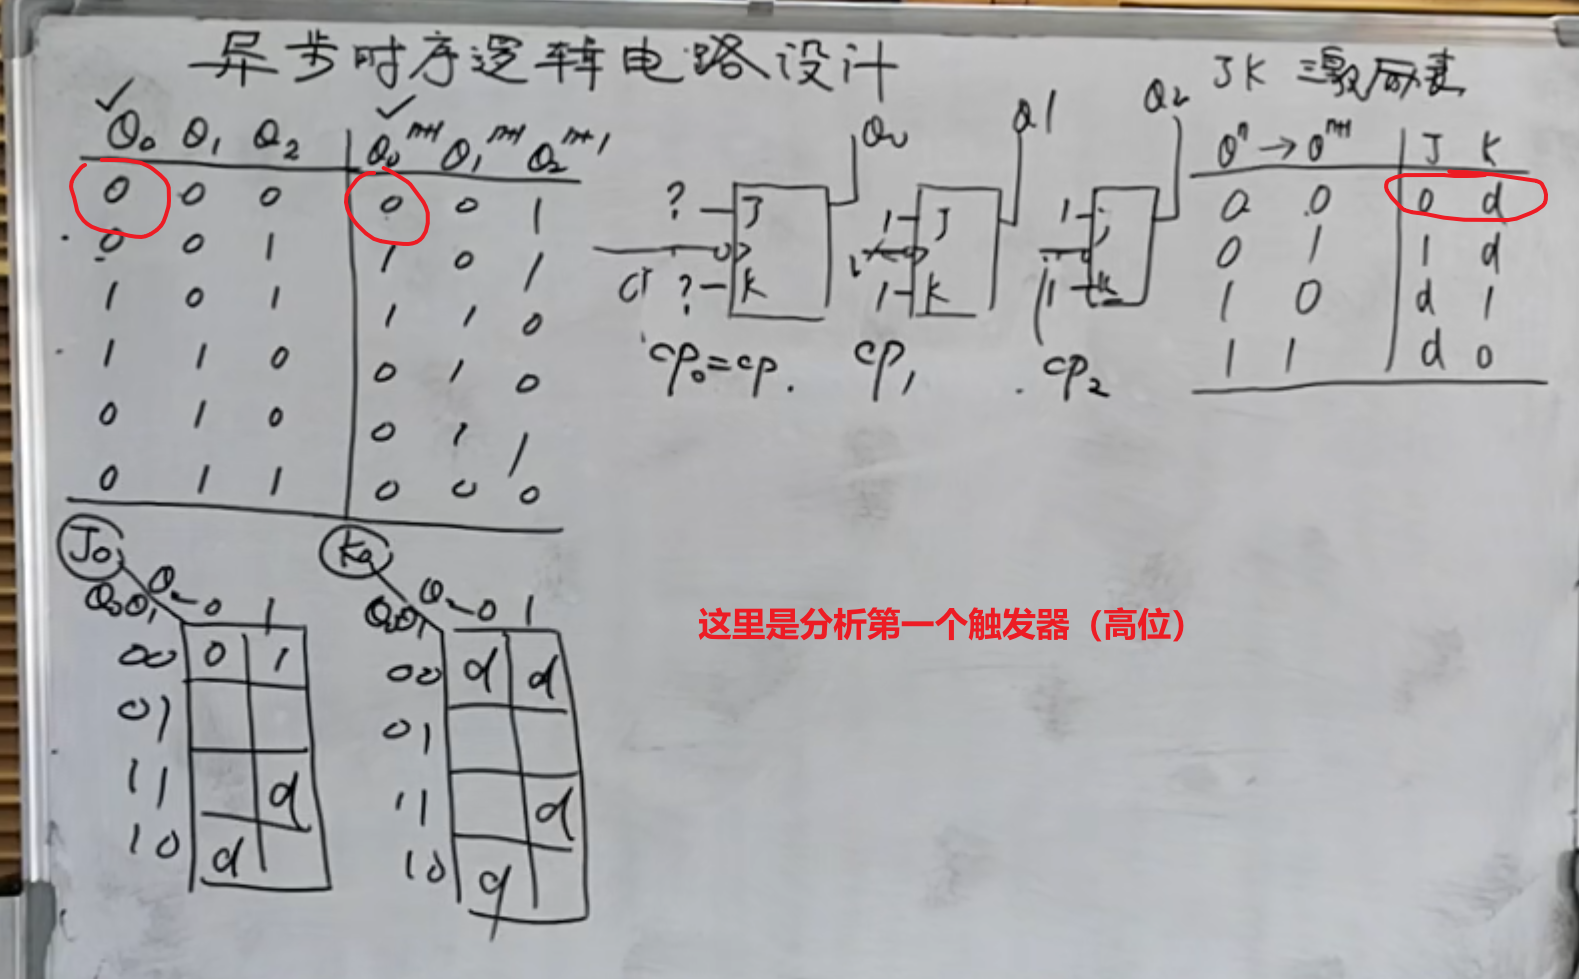 异步时序逻辑电路设计
JK 激励表
Q0 Q1 Q2 Q0^n+1 Q1^n+1 Q2^n+1
0 0 0 0 0 1
0 0 1 1 0 1
1 0 1 1 1 0
1 1 0 0 1 0
0 1 0 0 1 1
0 1 1 0 0 0
Q0 Q1 Q2
? J 1 J 1 J
CP ? K 1 K 1 K
CP0=CP. CP1 CP2
Q^n → Q^n+1 J K
0 0 0 d
0 1 1 d
1 0 d 1
1 1 d 0
J0
Q0Q1 Q2 0 1
00 0 1
01
11 d
10 d
K0
Q0Q1 Q2 0 1
00 d d
01
11 d
10 d
这里是分析第一个触发器（高位）